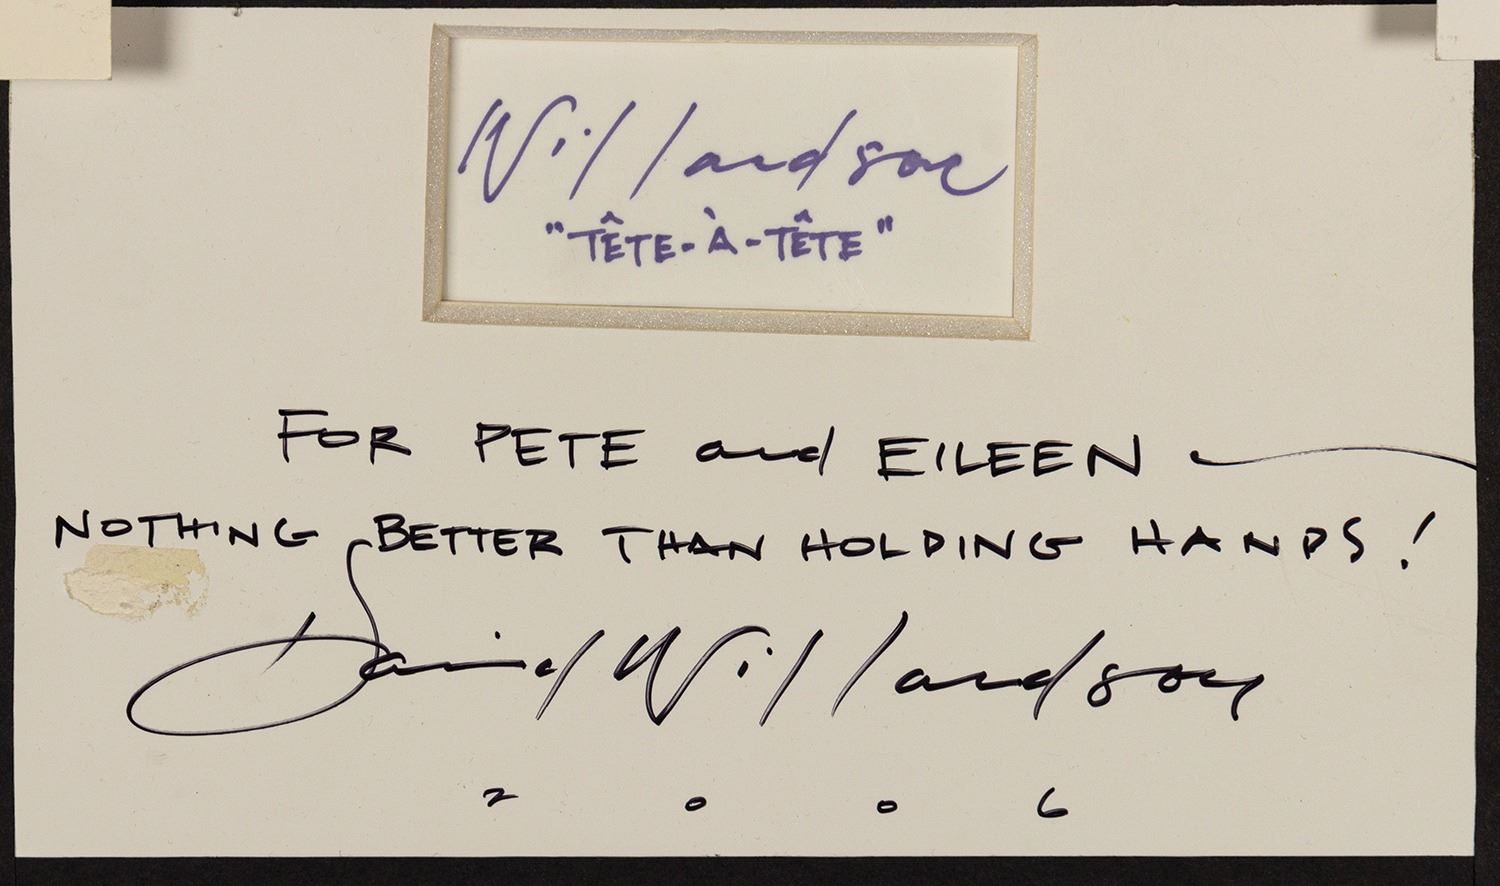 Willardson
"TÊTE-À-TÊTE"
FOR PETE and EILEEN
NOTHING BETTER THAN HOLDING HANDS!
David Willardson
2006